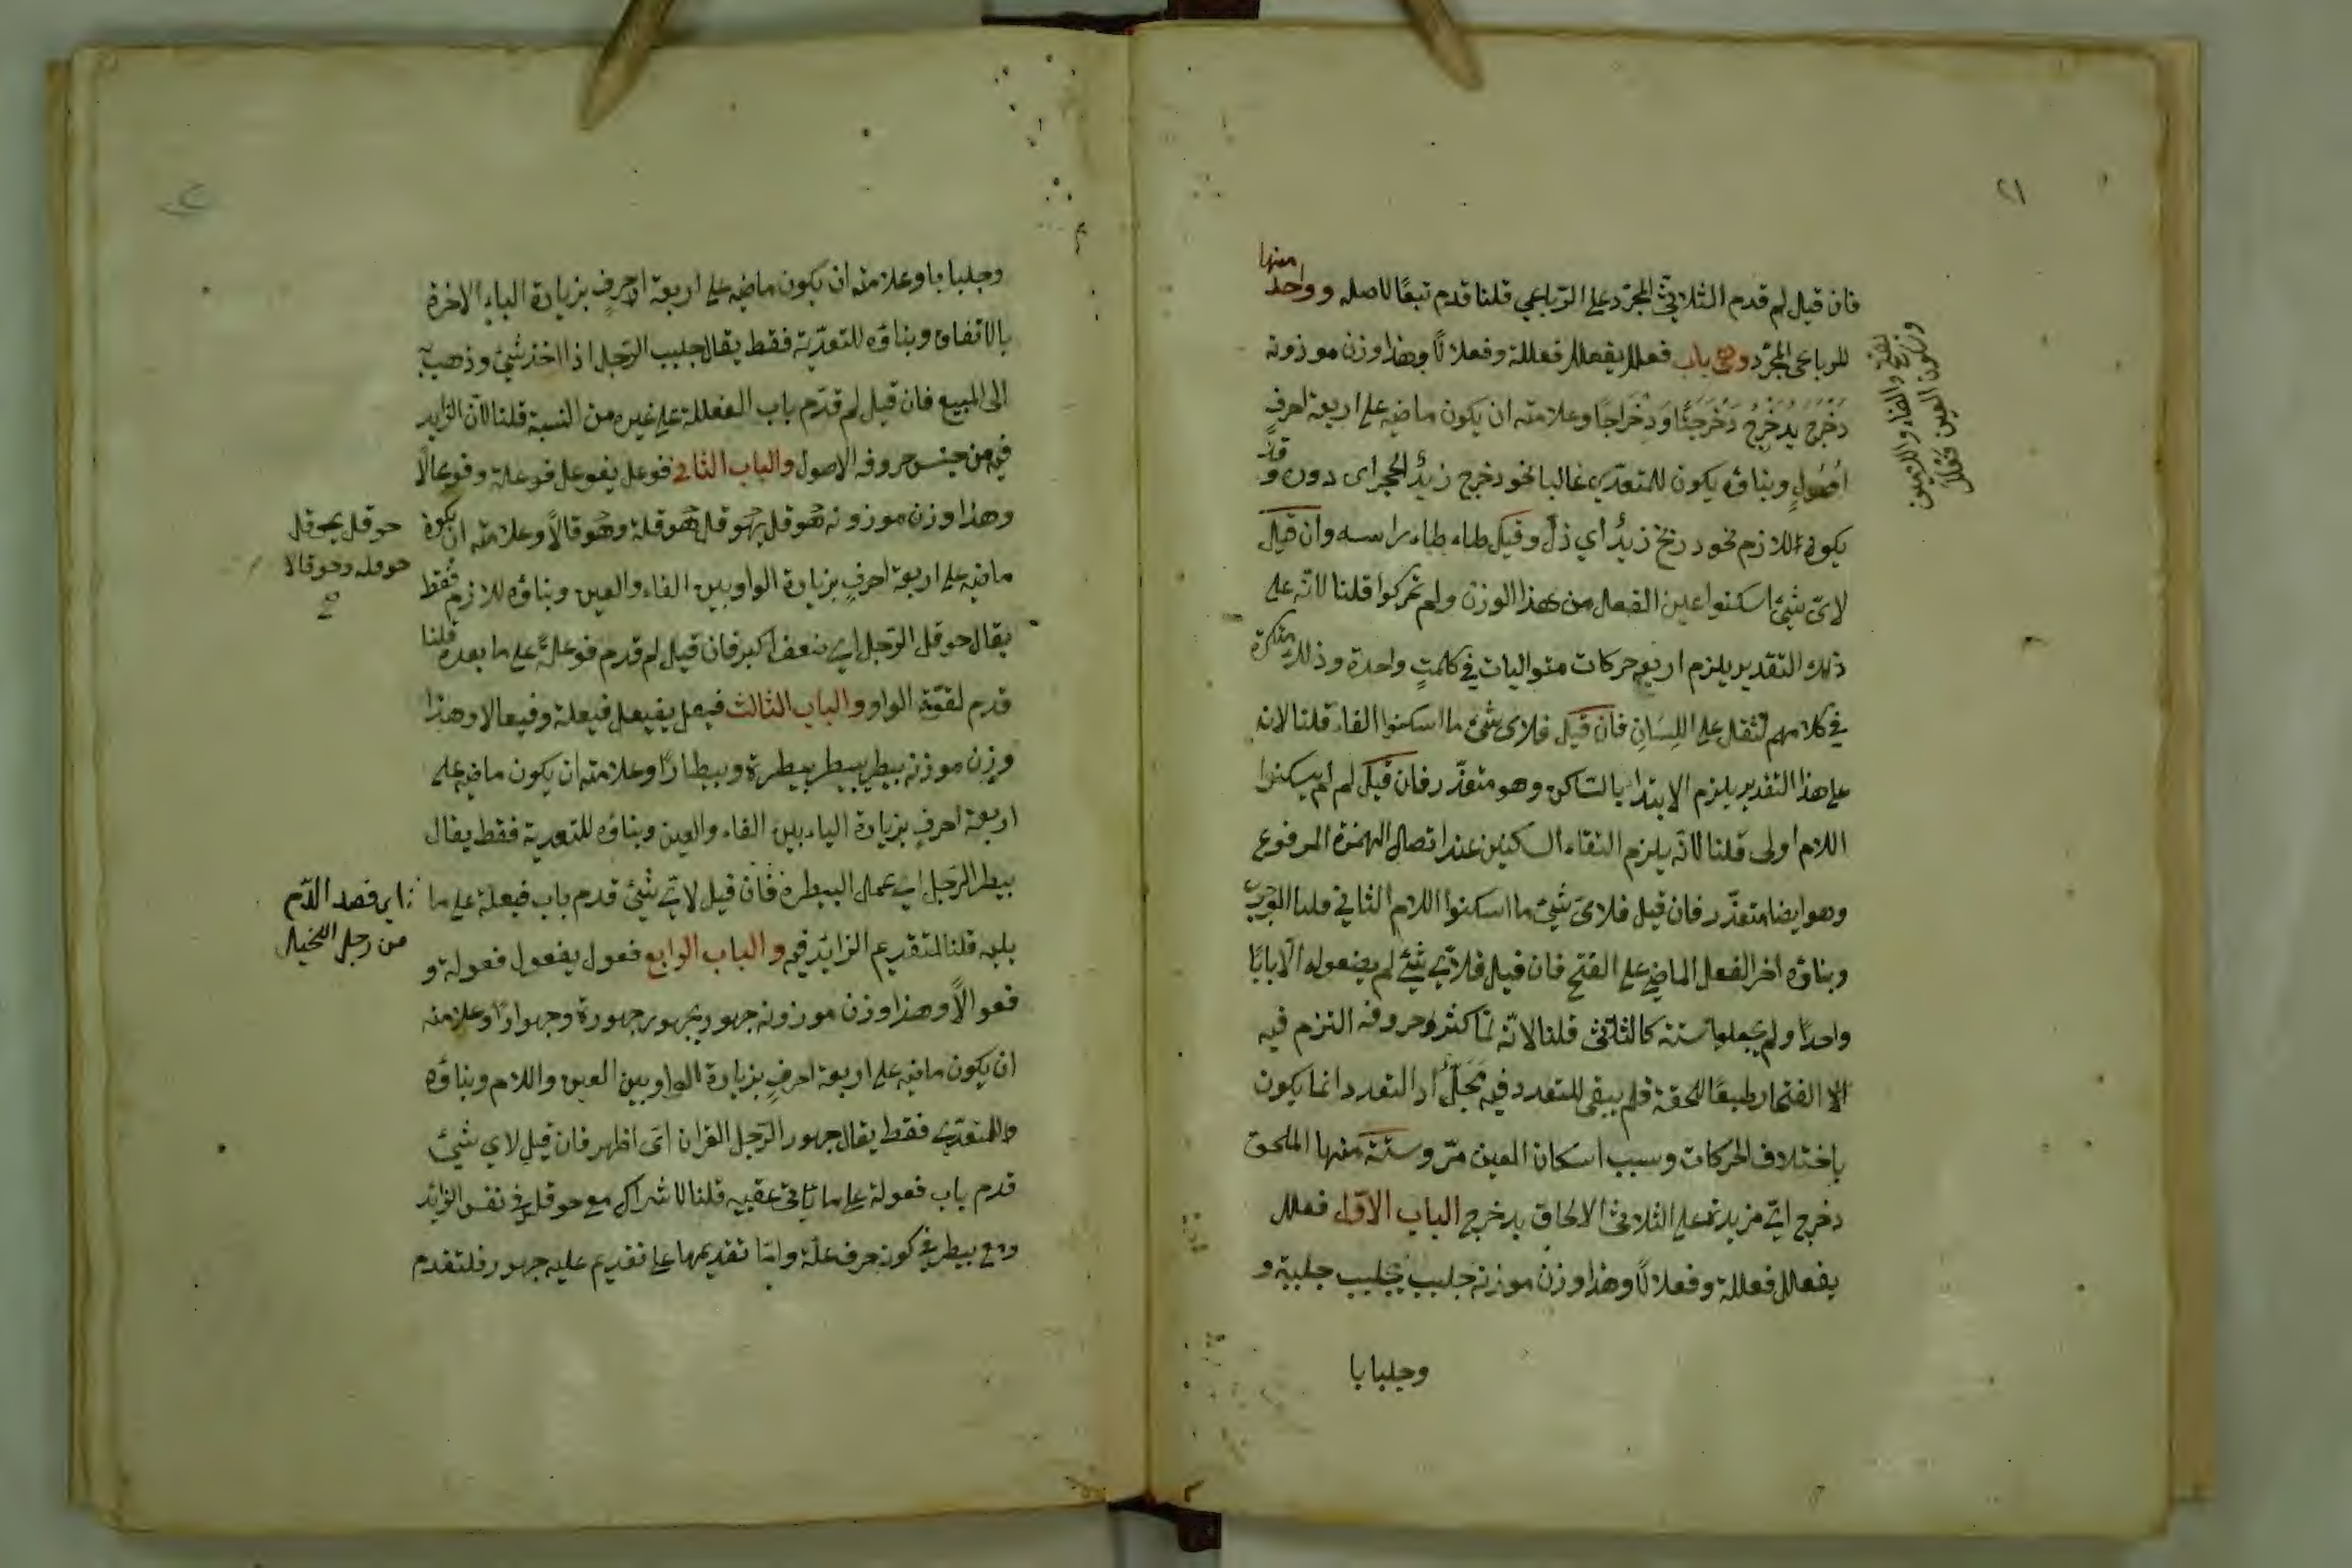 ٢١
فان قيل لم قدم الثلاثى المجرد على الرباعي قلنا قدم تبعًا لاصله وواحد منها
للرباعى المجرد وهى باب فعلل يفعلل فعللة وفعلالًا وهذا وزن موزونه
دَخْرَجَ يدخرج دَخْرَجَتًا وَدِخْرَاجًا وعلامته ان يكون ماضيه على اربعة احرفٍ
اُصُولٍ وبناؤه يكون للمتعدي غالبا نحو دخرج زيدٌ الحجر اى دون وقد
يكون اللازم نحو دربخ زيدٌ أي ذلّ وقيل طاء طاء راسه وان قيل
لاىّ شيئ اسكنوا عين الفعل من هذا الوزن ولم تحركوا قلنا لانّه على
ذلك التقدير يلزم اربع حركات متواليات في كلمتٍ واحدة وذلك متكرة
في كلامهم لثقل على اللِسَانِ فان قيل فلاى شئ ما اسكنوا الفاء قلنا لانه
على هذا التقدير يلزم الابتدا بالساكن وهو متعذّر فان قيل لم لم يسكنوا
اللام اولى قلنا لانّه يلزم التقاء الساكنين عند اتصال الهمزة المرفوع
وهو ايضا متعذّر فان قيل فلاىّ شيئ ما اسكنوا اللام الثاني قلنا
وبناؤه اخر الفعل الماضي على الفتح فان قيل فلاىّ شيئ لم يضعوله الّا بابًا
واحدًا ولم يجعلوها ستة كالثلاثى قلنا لانّه لمّا كثر حروفه التزم فيه
الا الفتحا طبعًا للخفة فلم يبقى للتعدد فيه مَحَلٌّ اذ التعدد انما يكون
باختلاف الحركات وسبب اسكان العين مرّ وستة منها الملحق
دخرج اىّ مزيدته على الثلاثىّ الالحاق بدخرج الباب الاوّل فعلل
يفعلل فعللة وفعلالًا وهذا وزن موزنه جلبب يجلبب جلببة و
وجلبابا
وبناؤه وعلامته ان يكون ماضيه على اربعة احرفٍ بزيادة الباء الاخرة
بالاتفاق وبناؤه للتعدّية فقط يقال جلبب الرّجل اذا اخذ شيئ وذهب به
الى المبيع فان قيل لم قدّم باب الفعللة على غيره من النسبة قلنا لانّ الزايد
فيه من جنس حروفه الاصول والباب الثاني فوعل يفوعل فوعلة وفوعالًا
وهذا وزن موزونه هوقل يهوقل هوقلة وهوقالًا وعلامته ان يكون
ماضيه على اربعة احرفٍ بزيادة الواو بين الفاء والعين وبناؤه للازم فقط
يقال حوقل الرّجل اي ضعف اكبر فان قيل لم قدم فوعلةً على ما بعده قلنا
قدم لقوّة الواو والباب الثالث فيعل يفيعل فيعلة وفيعالا وهذا
وزن موزنه بيطر يبيطر بيطرة وبيطارًا وعلامته ان يكون ماضيه على
اربعة احرفٍ بزيادة الياء بين الفاء والعين وبناؤه للتعدية فقط يقال
بيطر الرّجل اي عمل البيطرة فان قيل لاىّ شيئ قدم باب فيعلة على ما
يليه قلنا لتقديم الزائد فيه والباب الرابع فعول يفعول فعولة و
فعوالًا وهذا وزن موزونه جهور يجهور جهورة وجهوارًا وعلامته
ان يكون ماضيه على اربعة احرفٍ بزيادة الواو بين العين واللام وبناؤه
للمتعدّي فقط يقال جهور الرّجل القران اىّ اظهر فان قيل لاي شيئ
قدم باب فعولة على ما ياتى عقيبه قلنا لاشتراك مع حوقل في نفس الزائد
ومع بيطر في كونه حرف علّة وامّا تقديمها على تقديم عليه جهور فلتقدم
حوقل يحوقل
حوقلة وحوقالا
اي فصد الدّم
من رجل الخيل